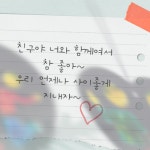 친구야 너와 함께여서
참 좋아~
우리 언제나 사이좋게
지내자~